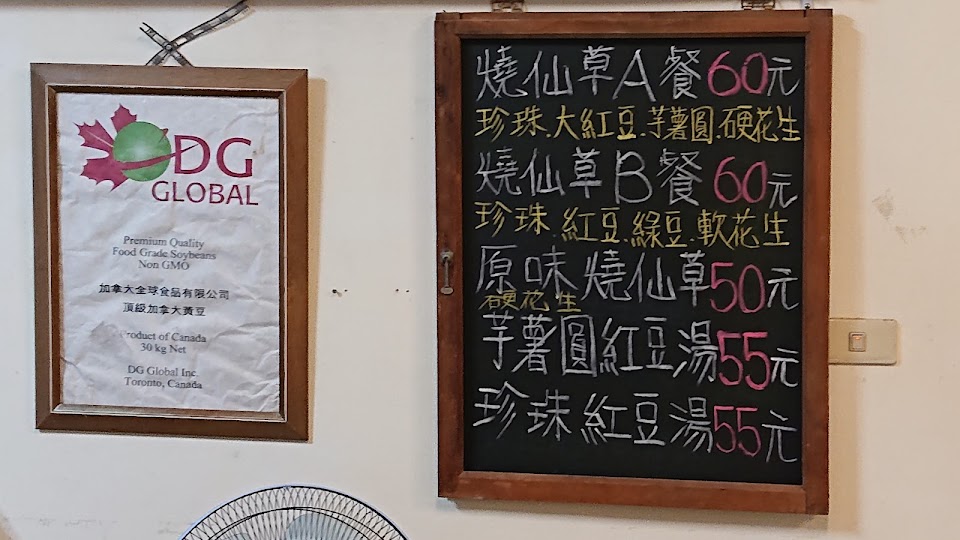 DG
GLOBAL
Premium Quality
Food Grade Soybeans
Non GMO
加拿大全球食品有限公司
頂級加拿大黃豆
Product of Canada
30 kg Net
DG Global Inc.
Toronto, Canada
燒仙草A餐60元
珍珠.大紅豆.芋薯圓.硬花生
燒仙草B餐60元
珍珠.紅豆.綠豆.軟花生
原味燒仙草50元
硬花生
芋薯圓紅豆湯55元
珍珠紅豆湯55元